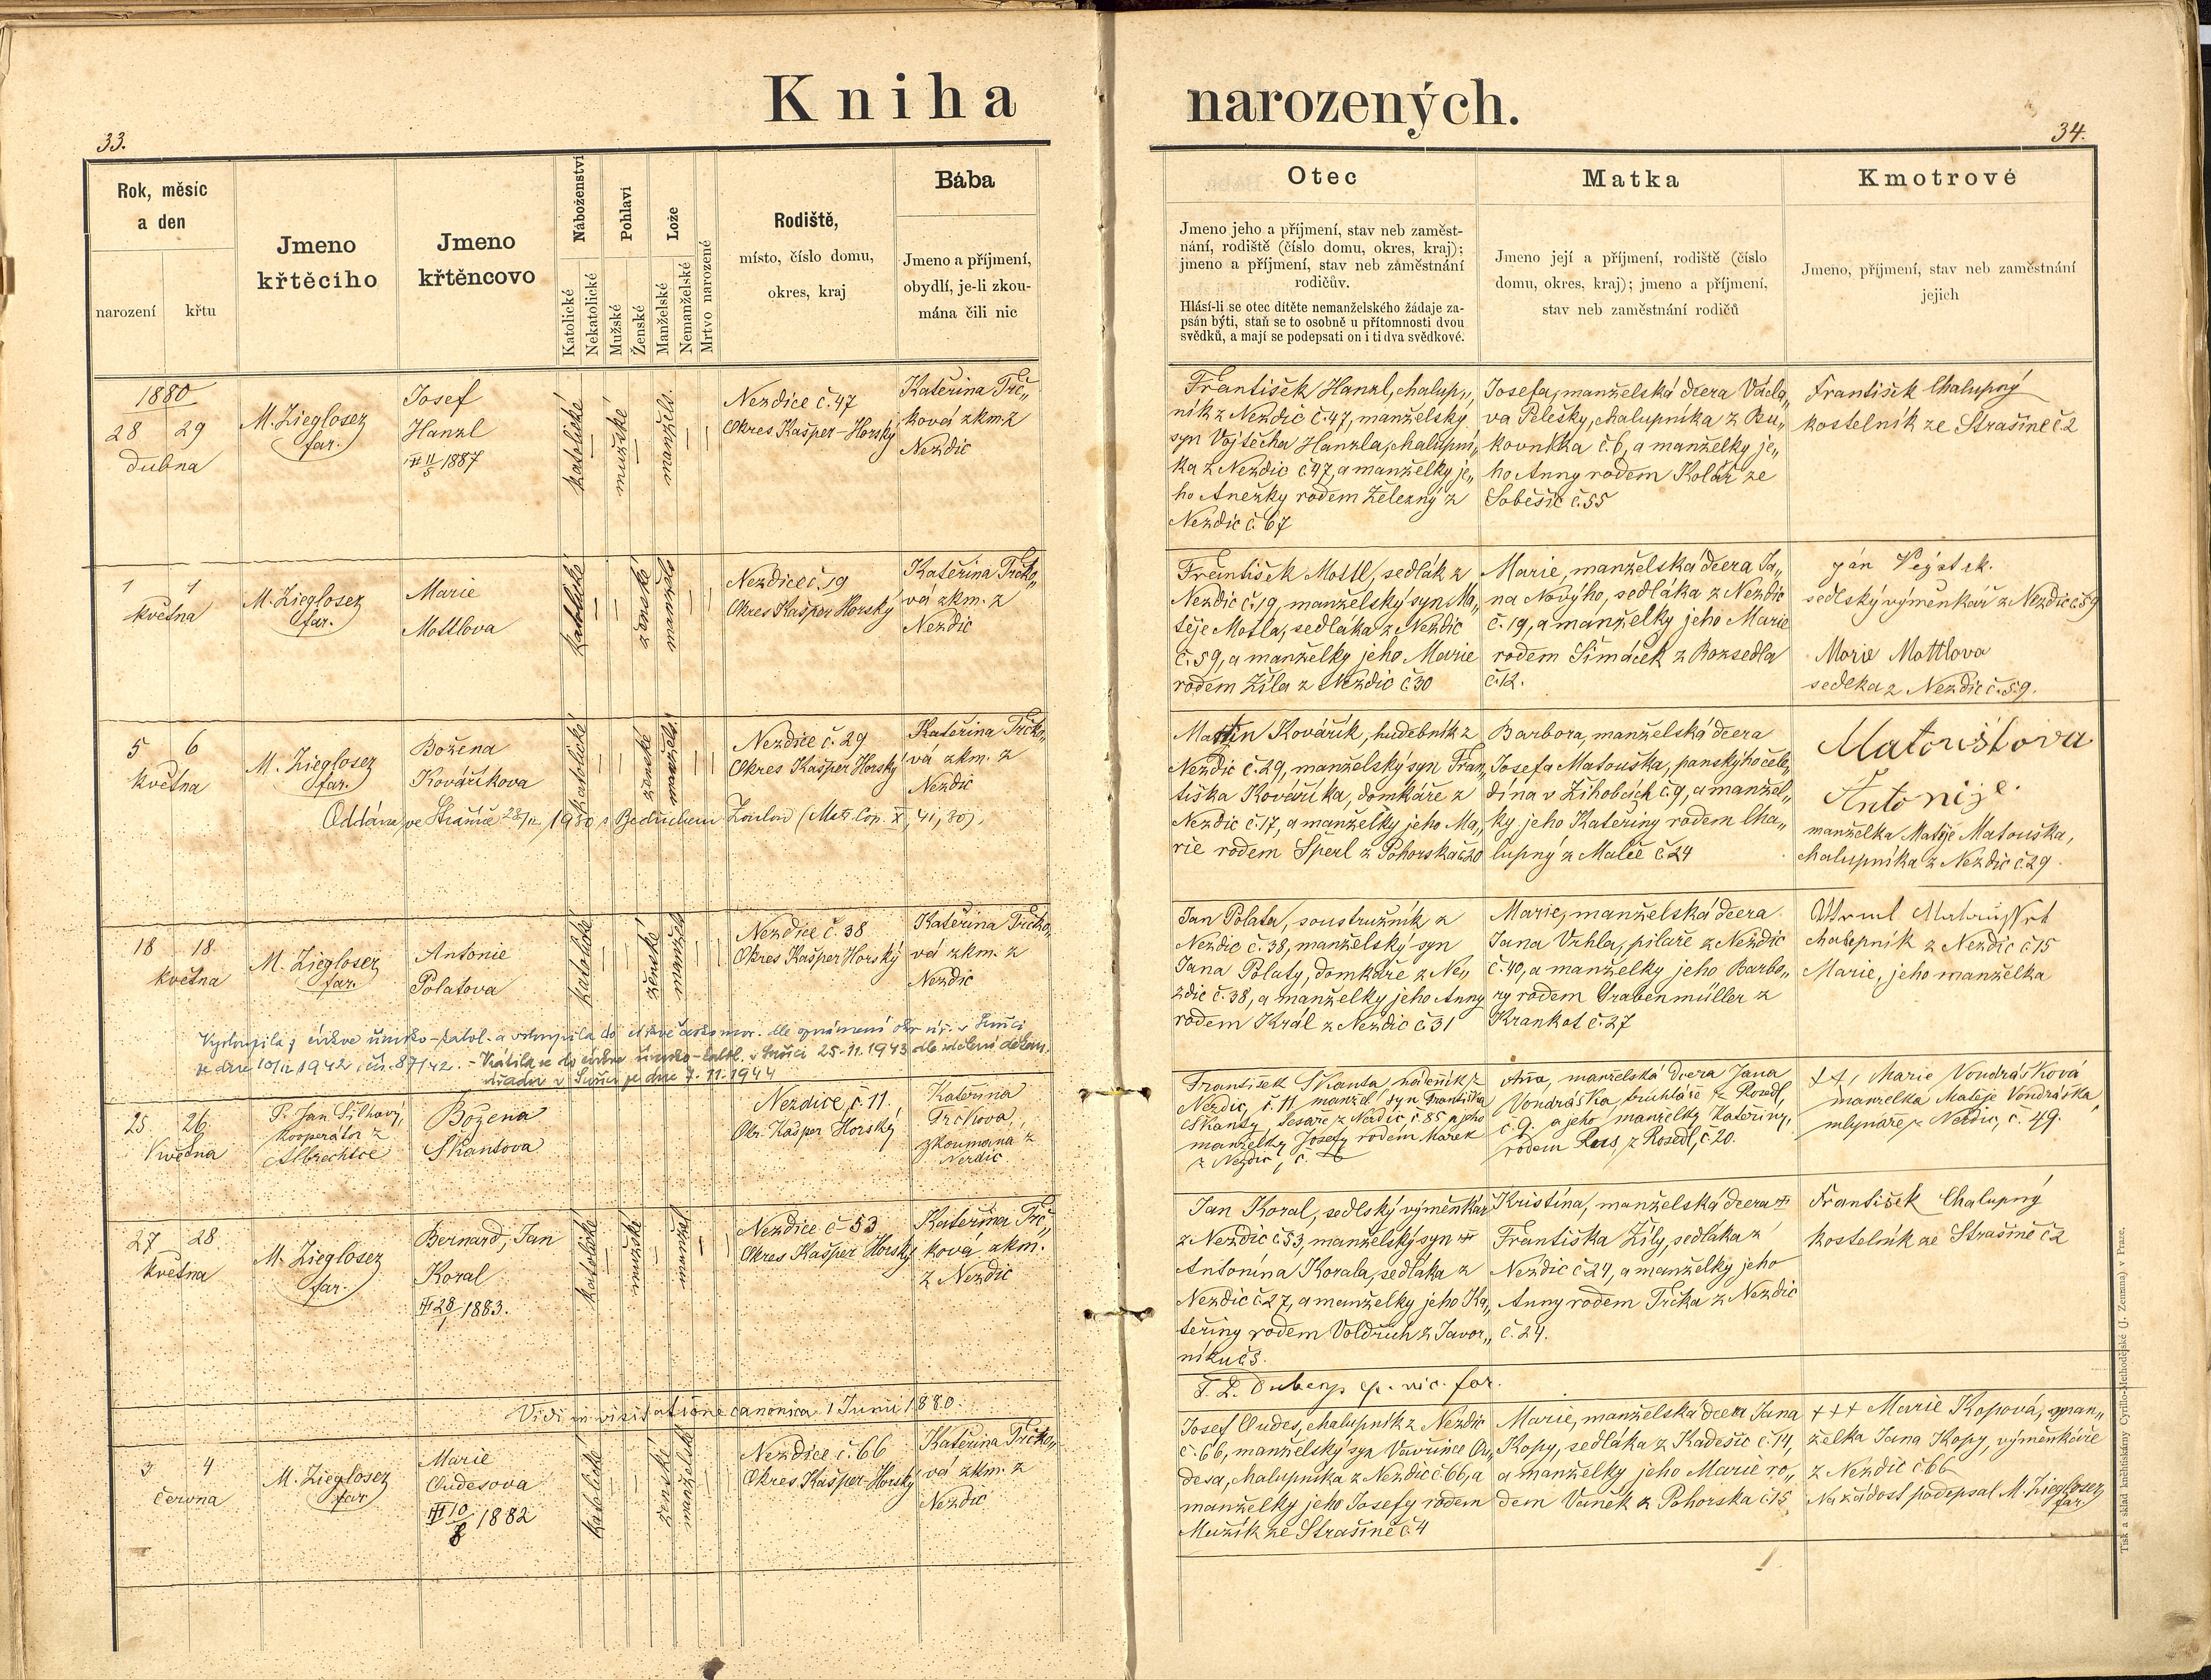 Kniha narozených.
33.
34.
Rok, měsíc
a den
narození
křtu
Jmeno
křtěcího
Jmeno
křtěncovo
Náboženství
Katolické
Nekatolické
Pohlaví
Mužské
Ženské
Lože
Manželské
Nemanželské
Mrtvo narozené
Rodiště,
místo, číslo domu,
okres, kraj
Bába
Jmeno a příjmení,
obydlí, je-li zkou-
mána čili nic
Otec
Jmeno jeho a příjmení, stav neb zaměst-
nání, rodiště (číslo domu, okres, kraj);
jmeno a příjmení, stav neb zaměstnání
rodičův.
Hlásí-li se otec dítěte nemanželského žádaje za-
psán býti, staň se to osobně u přítomnosti dvou
svědků, a mají se podepsati on i ti dva svědkové.
Matka
Jmeno její a příjmení, rodiště (číslo
domu, okres, kraj); jmeno a příjmení,
stav neb zaměstnání rodičů
Kmotrové
Jmeno, příjmení, stav neb zaměstnání
jejich
1880
28 29
dubna
M. Zieglosez
far.
Josef
Hanzl
11/5 1887
katolické
mužské
manžels.
Nezdice č. 47
Okres Kašper-Horský
Kateřina Trč„
ková zkm. z
Nezdic
František Hanzl, chalup„
ník z Nezdic č. 47, manželský
syn Vojtěcha Hanzla, chalupní„
ka z Nezdic č. 47, a manželky je„
ho Anežky rodem Železný z
Nezdic č. 67
Josefa, manželská dcera Václa„
va Pelešky, chalupníka z Bu„
kovníka č. 6, a manželky je„
ho Anny rodem Kolář ze
Soběšic č. 55
František Chalupný
kostelník ze Strašině č. 2
1 1
května
M. Zieglosez
far.
Marie
Mottlova
katolické
ženské
manžels
Nezdice č. 19
Okres Kašper Horský
Kateřina Trčko„
vá zkm. z
Nezdic
František Mottl, sedlák z
Nezdic č. 19, manželský syn Ma„
těje Motla, sedláka z Nezdic
č. 59, a manželky jeho Marie
rodem Žíla z Nezdic č. 30
Marie, manželská dcera Ja„
na Nového, sedláka z Nezdic
č. 19, a manželky jeho Marie
rodem Šimáček z Rozsedla
č. 12.
sedlský výměnkář z Nezdic č. 59
Marie Mottlova
sedlka z Nezdic č. 59.
5 6
května
M. Zieglosez
far.
Božena
Kovaříkova
katolické
ženské
manžels.
Nezdice č. 29
Okres Kašper Horský
Kateřina Trčko„
vá zkm. z
Nezdic
Martin Kovářík, hudebník z
Nezdic č. 29, manželský syn Fran„
tiška Kováříka, domkáře z
Nezdic č. 17, a manželky jeho Ma„
rie rodem Šperl z Pohorska č. 20
Barbora, manželská dcera
Josefa Matouška, panskýho čele„
dína v Žihobcích č. 9, a manžel„
ky jeho Kateřiny rodem Cha„
lupný z Malče č. 24
Matoušova
Antonije.
manželka Matěje Matouška,
chalupníka z Nezdic č. 29.
Oddána ve Strašíně 1930 s Bedřichem
18 18
května
M. Zieglosez
far.
Antonie
Polatova
katolické
ženské
manžels
Nezdice č. 38
Okres Kašper Horský
Kateřina Trčko„
vá zkm. z
Nezdic
Jan Polata, soustružník z
Nezdic č. 38, manželský syn
Jana Polaty, domkáře z Ne„
zdic č. 38, a manželky jeho Anny
rodem Král z Nezdic č. 31
Marie, manželská dcera
Jana Vrhla, pilaře z Nezdic
č. 40, a manželky jeho Barbo„
ry rodem Grabenmüller z
Krankot č. 27
chalupník z Nezdic č. 15
Marie, jeho manželka
Vystoupila z církve římsko-katol. a vstoupila do církve českomor. dle oznámení okr. úř. v Sušici
ze dne 10/12 1942, čís. 87/42. - Vrátila se do církve římsko-katol. v Sušici 25.11.1943 dle sdělení děkan.
úřadu v Sušici ze dne 7.11.1944
25. 26.
Května
P. Jan
kooperátor z
Albrechtic
Božena
Škantova
Nezdice, č. 11.
Okr. Kašper Horský
Kateřina
Trčkova,
zkoumaná z
Nezdic
František Škanta, nádeník z
Nezdic, č. 11, manžel. syn Františka
Škanty, tesaře z Nezdic č. 85 a jeho
manželky Josefy rodem Marek
z Nezdic, č.
Anna, manželská dcera Jana
Vondráška, truhláře z Rozsedl,
č. 9. a jeho manželky Kateřiny,
rodem Reus, z Rozsedl, č. 20.
++, Marie Vondrášková
manželka Matěje Vondráška
mlynáře z Nezdic, č. 49.
27 28
května
M. Zieglosez
far.
Bernard, Jan
Koral
28/1 1883.
katolické
mužské
manžel
Nezdice č. 53
Okres Kašper Horský
Kateřina Trč„
ková, zkm.
z Nezdic
Jan Koral, sedlský výměnkář
z Nezdic č. 53, manželský syn
Antonína Korala, sedláka z
Nezdic č. 27, a manželky jeho Ka„
teřiny rodem Voldřich z Javor„
níku č. 3.
Kristína, manželská dcera
Františka Žíly, sedláka z
Nezdic č. 24, a manželky jeho
Anny rodem Trčka z Nezdic
č. 24.
František Chalupný
kostelník ze Strašině č. 2
Vidi in visitatione canonica 1 Junii 1880.
3 4
června
M. Zieglosez
far
Marie
Oudesova
10/8 1882
katolické
ženské
manželské
Nezdice č. 66
Okres Kašper-Horský
Kateřina Trčko„
vá zkm. z
Nezdic
Josef Oudes, chalupník z Nezdic
č. 66, manželský syn Vavřince Ou„
desa, chalupníka z Nezdic č. 66, a
manželky jeho Josefy rodem
Mužík ze Strašině č. 4
Marie, manželská dcera Jana
Kopy, sedláka z Kadešic č. 14,
a manželky jeho Marie ro„
dem Vaněk z Pohorska č. 15
+++ Marie Kopová, man„
želka Jana Kopy, výměnkáře
z Nezdic č. 66
Na žádost podepsal M. Zieglosez
far
Tisk a sklad knihtiskárny Cyrillo-Methodějské (J. Zeman) v Praze.